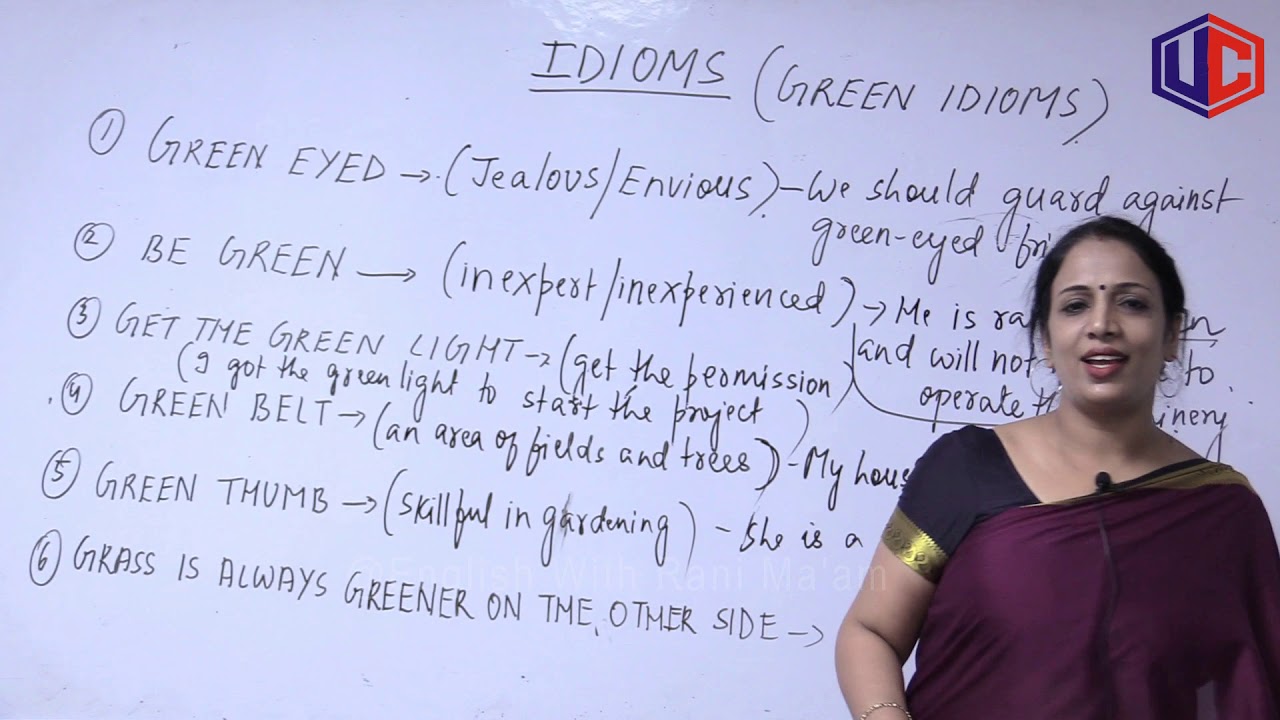 IDIOMS (GREEN IDIOMS)
① GREEN EYED → (Jealous/Envious) - We should guard against
green-eyed
② BE GREEN → (inexpert/inexperienced) → He is
and will not to
operate
③ GET THE GREEN LIGHT → (get the permission)
(I got the green light to start the project)
④ GREEN BELT → (an area of fields and trees) - My
⑤ GREEN THUMB → (skillful in gardening) - She is a
⑥ GRASS IS ALWAYS GREENER ON THE OTHER SIDE →
@English With Rani Ma'am
UC